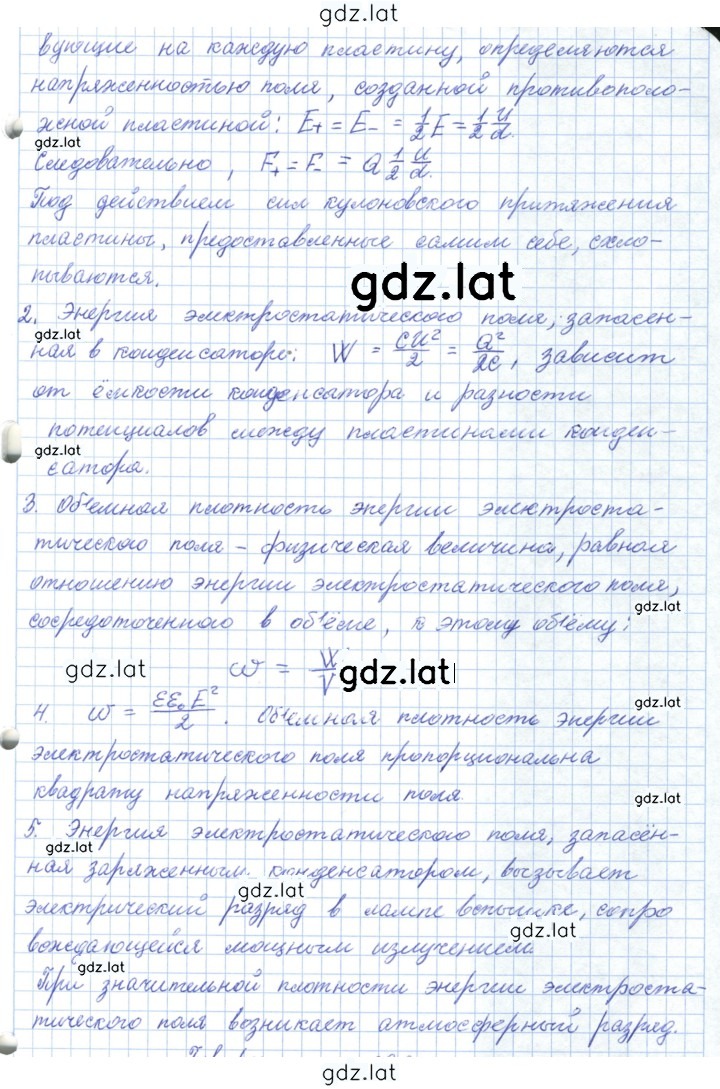 gdz.lat
вующие на каждую пластину, определяются
напряженностью поля, созданной противополо-
жной пластиной: E₊ = E₋ = 1/2 E = 1/2 U/d.
gdz.lat
Следовательно, F₊ = F₋ = Q 1/2 U/d.
Под действием сил кулоновского притяжения
пластины, предоставленные самим себе, схло-
пываются.
gdz.lat
2. Энергия электростатического поля, запасен-
gdz.lat
ная в конденсаторе: W = CU²/2 = Q²/2C, зависит
от ёмкости конденсатора и разности
потенциалов между пластинами конден-
gdz.lat
сатора.
3. Объемная плотность энергии электроста-
тического поля – физическая величина, равная
отношению энергии электростатического поля,
gdz.lat
сосредоточенного в объёме, к этому объёму:
gdz.lat
ω = W/V
gdz.lat
4. ω = εε₀E²/2. Объемная плотность энергии
gdz.lat
электростатического поля пропорциональна
квадрату напряженности поля.
gdz.lat
5. Энергия электростатического поля, запасён-
gdz.lat
ная заряженным конденсатором, вызывает
gdz.lat
электрический разряд в лампе вспышке, сопро
gdz.lat
вождающейся мощным излучением.
gdz.lat
При значительной плотности энергии электроста-
тического поля возникает атмосферный разряд.
gdz.lat